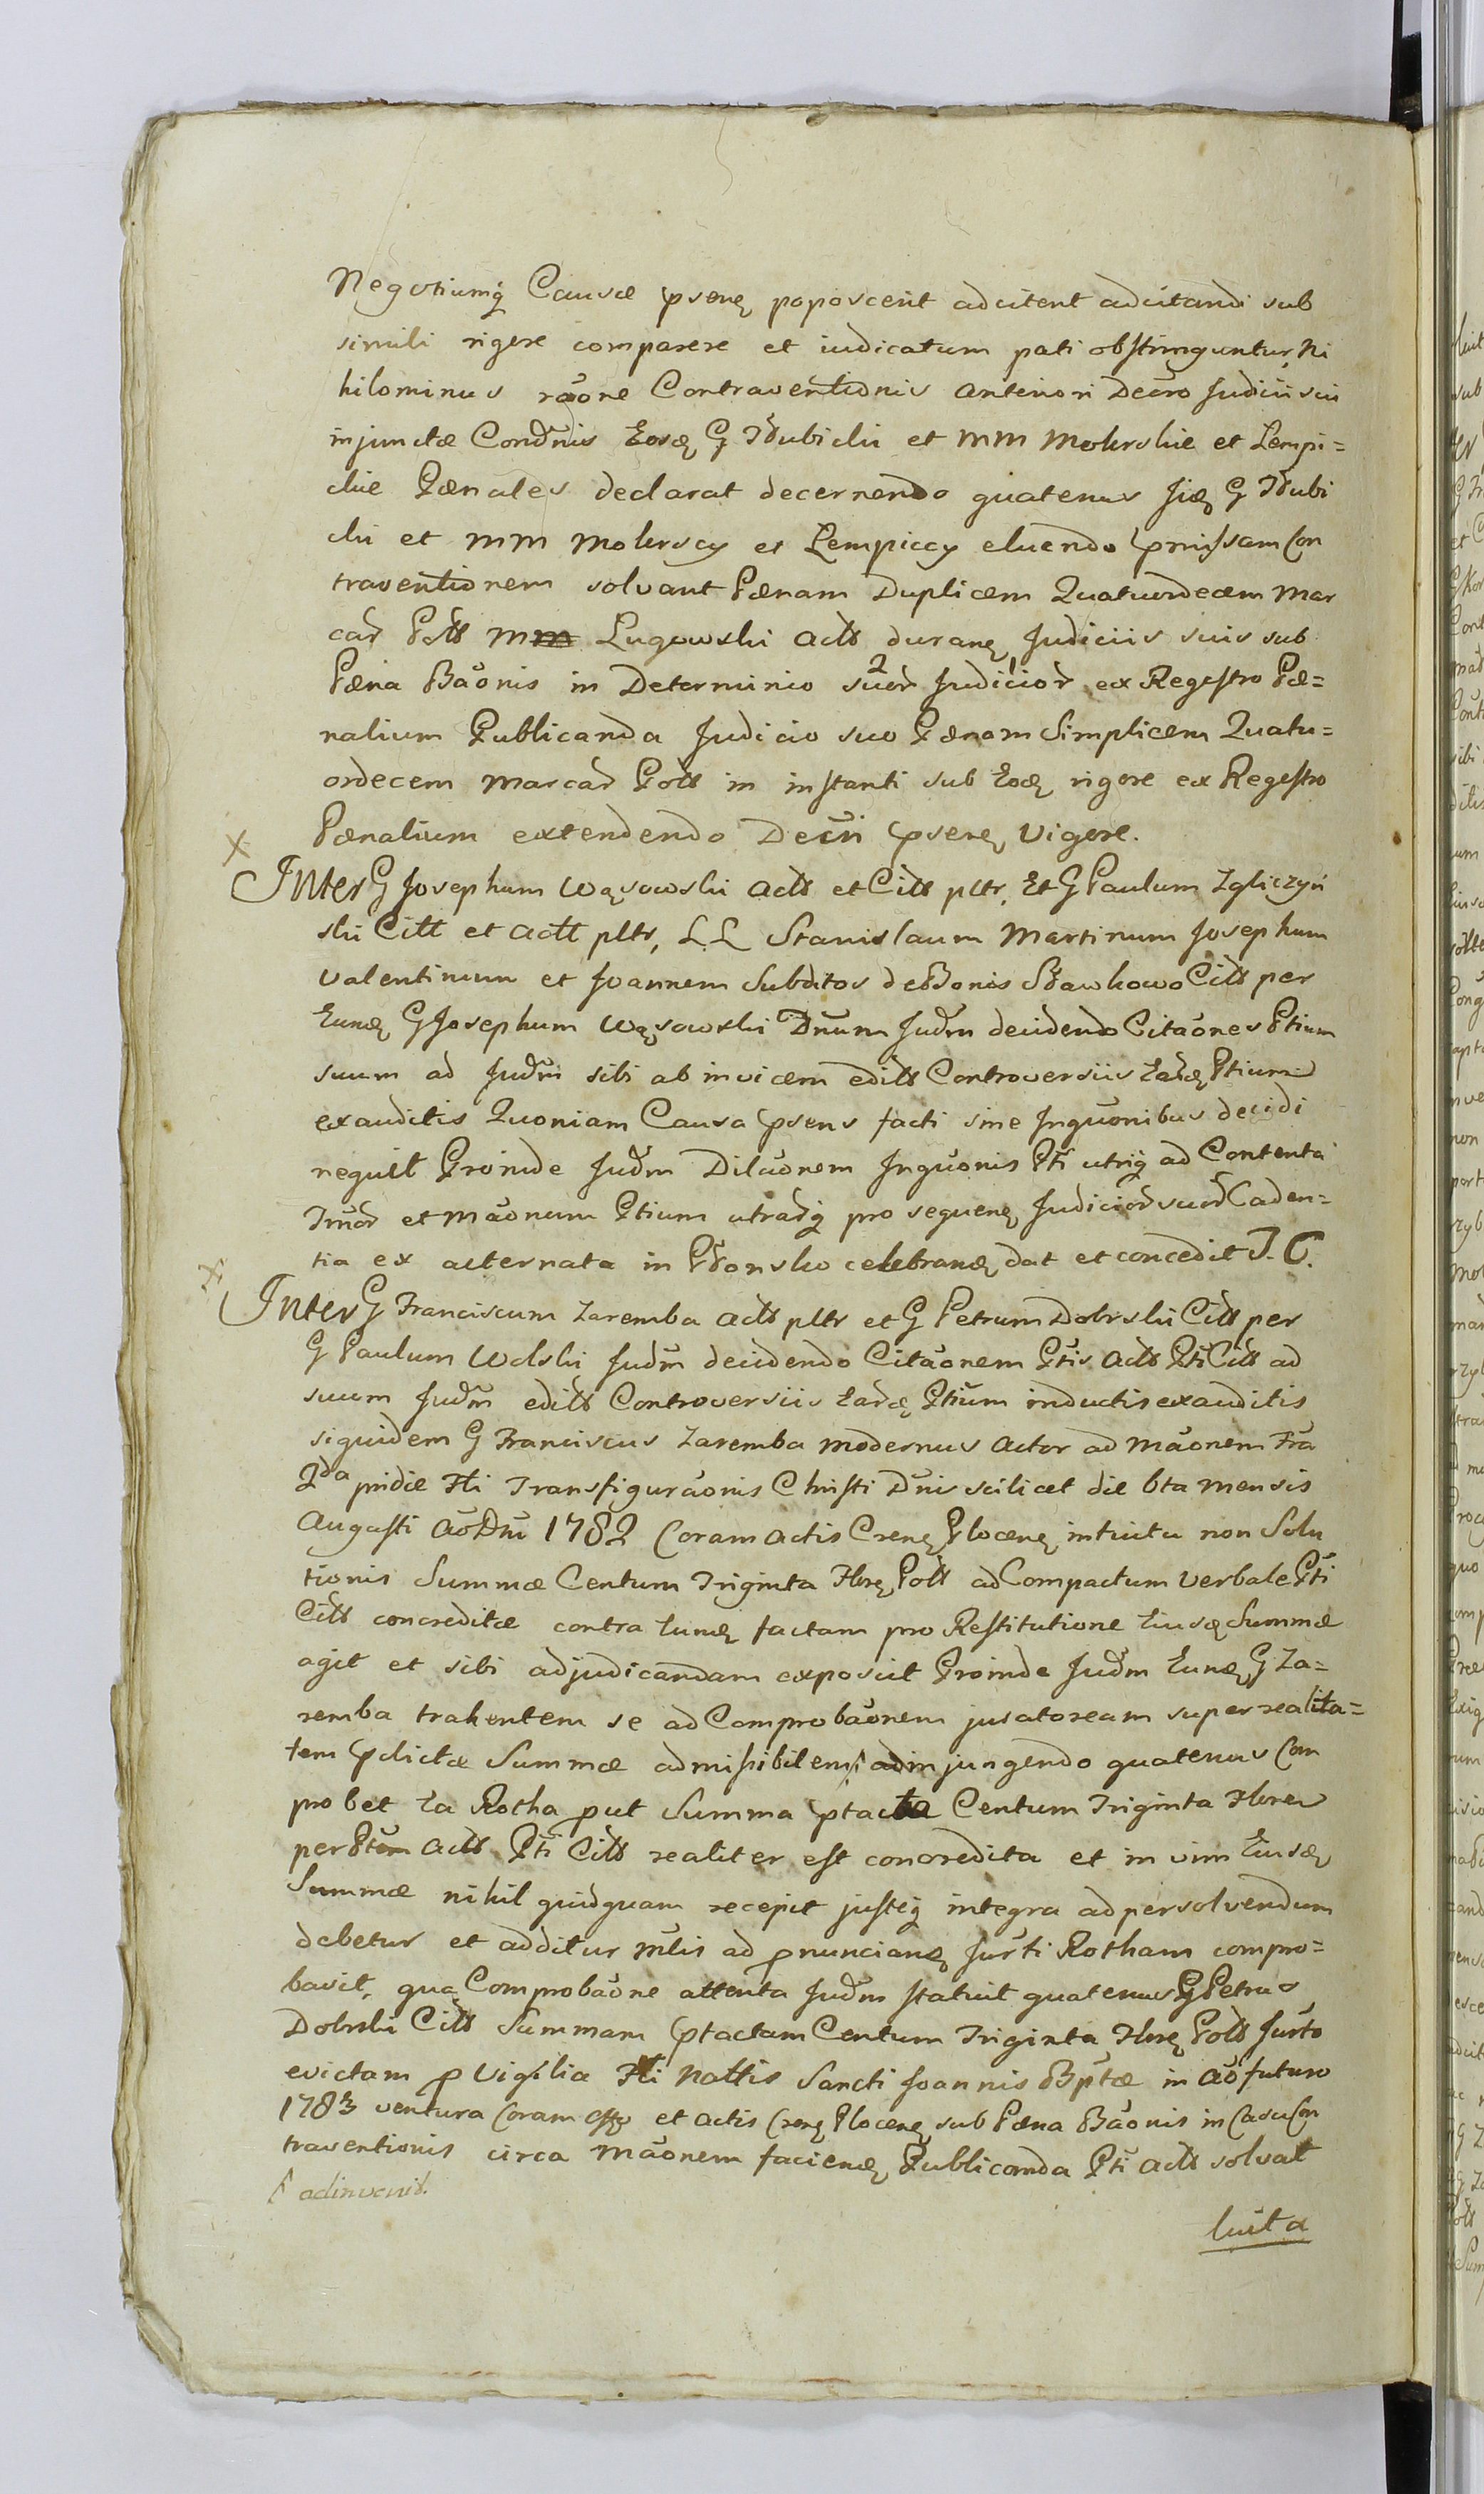 Negotiumq Causæ psene poposcerit adcitent adcitandi sub
simili rigore comparere et iudicatum pati obstringuntur, Ni
hilominus raõne Contraventionis anteriori Decro Judicii sui
injunctæ Condnis Eosd G Dłubicki et MM Mokrskie et Lempi=
ckie Pænales declarat decernendo quatenus Jid G Dłubi
cki et MM Mokrscy et Lempiccy eluendo pmissam Con
traventionem solvant Pænam Duplicem Quatuordecem Mar
car Polls M Ługowski Acts durane Judiciis suis sub
Pæna Baõnis in Determinio suor Judicior ex Regestro Pæ=
nalium Publicanda Judicio suo Pænam Simplicem Quatu=
ordecem Marcar Polls in instanti sub Eod rigore ex Regestro
Pænalium extendendo Decri psene vigore.
X
Inter G Josephum Wąsowski Acts et Cits pltr, Et G Paulum Zgliczyń
ski Citt et Actt pltr, L.L Stanislaum Martinum Josephum
Valentinum et Joannem Subditos de Bonis Sławkowo Cits per
Eund G Josephum Wąsowski Dnum Judm decidendo Citaones Ptium
suum ad Judm sibi ab invicem edits Controversiis Eard Ptium
exauditis Quoniam Causa psens facti sine Inquonibus decidi
nequit Proinde Judm Dilaonem Inquonis Pti utriq ad Contenta
Tmor et Maonum Ptium utrarq pro sequene Judicior suor Caden=
tia ex alternata in Płonsko celebrand dat et concedit T. C.
X
Inter G Franciscum Zaremba Acts pltr et G Petrum Dobrski Cits per
G Paulum Wolski Judm decidendo Citaonem Ptis Acts Pti Cits ad
suum Judm edits Controversiis Eard Ptium inductis exauditis
siquidem G Franciscus Zaremba modernus Actor ad Maonem Fra
2da pridie Fti Transfiguraonis Christi Dni scilicet die 6ta mensis
Augusti Ao Dni 1782 Coram Actis Crene Plocene intuitu non Solu
tionis Summæ Centum Triginta Flore Polls ad Compactum verbale Pti
Cits concreditæ contra Eund factam pro Restitutione Eiusd Summæ
agit et sibi adjudicandam exposcit Proinde Judm Eund G Za=
remba trahentem se ad Comprobaonem juratoream super realita=
tem pdictæ Summæ admisibilem injungendo quatenus Com
probet Ea Rotha put Summa ptacta Centum Triginta Flore
per Ptem Acts Pti Cits realiter est concredita et in vim Eiusd
Summæ nihil quidquam recepit justeq integra ad persolvendum
debetur et additur mtis ad pnunciand Jurti Rotham compro=
bavit, qua Comprobaone attenta Judm statuit quatenus G Petrus
Dobrski Cits Summam ptactam Centum Triginta Flore Polls Jurto
evictam p Vigilia Fti Nattis Sancti Joannis Bptæ in Ao futuro
1783 ventura Coram Offo et Actis Crene Plocene sub Pæna Baonis in Casu Con
traventionis circa Maonem faciend Publicanda Pti Acts solvat
adinvenit.
luita